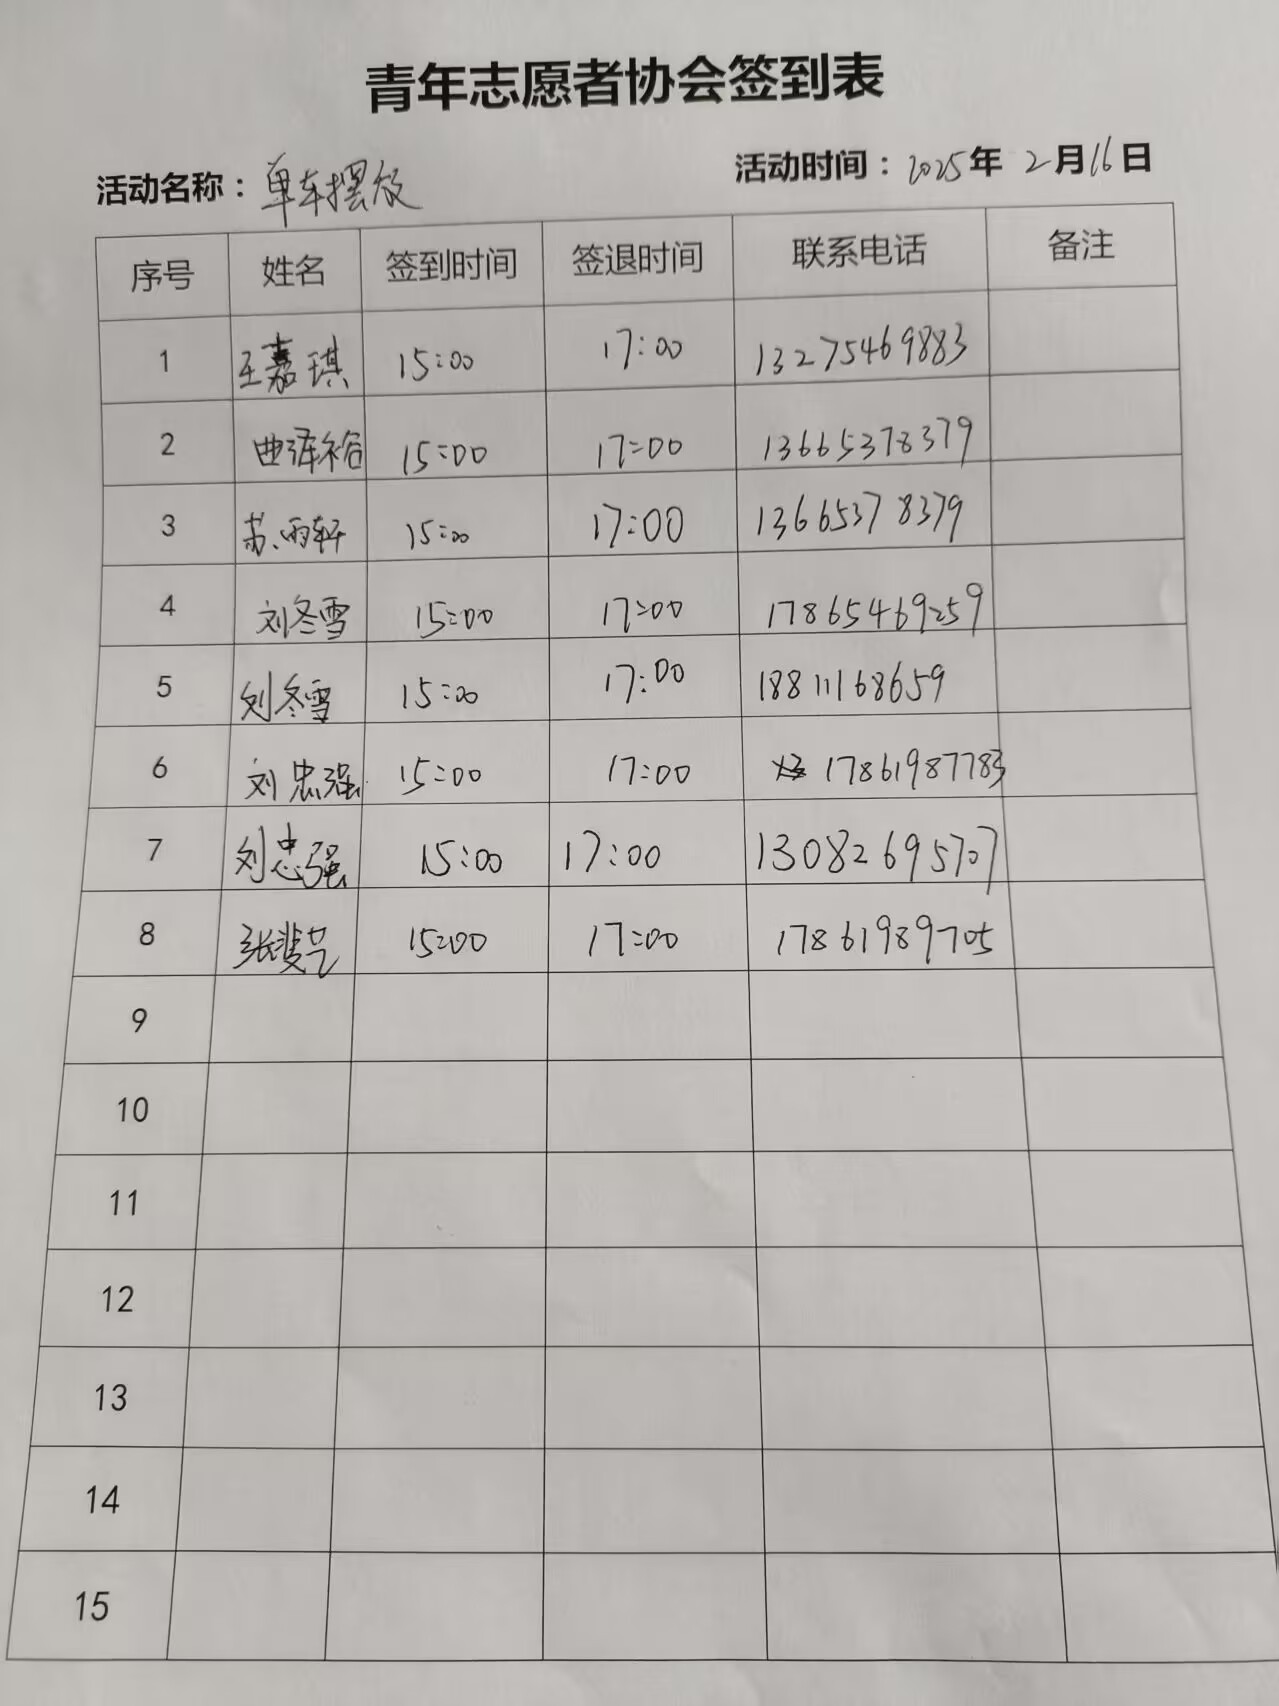 青年志愿者协会签到表
活动名称：单车摆放 活动时间：2025年 2月16日
序号 姓名 签到时间 签退时间 联系电话 备注
1 王嘉琪 15:00 17:00 13275469883
2 曲泽裕 15:00 17:00 13665378379
3 苏雨轩 15:00 17:00 13665378379
4 刘冬雪 15:00 17:00 17865469259
5 刘冬雪 15:00 17:00 18811168659
6 刘忠强 15:00 17:00 17861987783
7 刘忠强 15:00 17:00 13082695707
8 张斐艺 15:00 17:00 17861989705
9
10
11
12
13
14
15